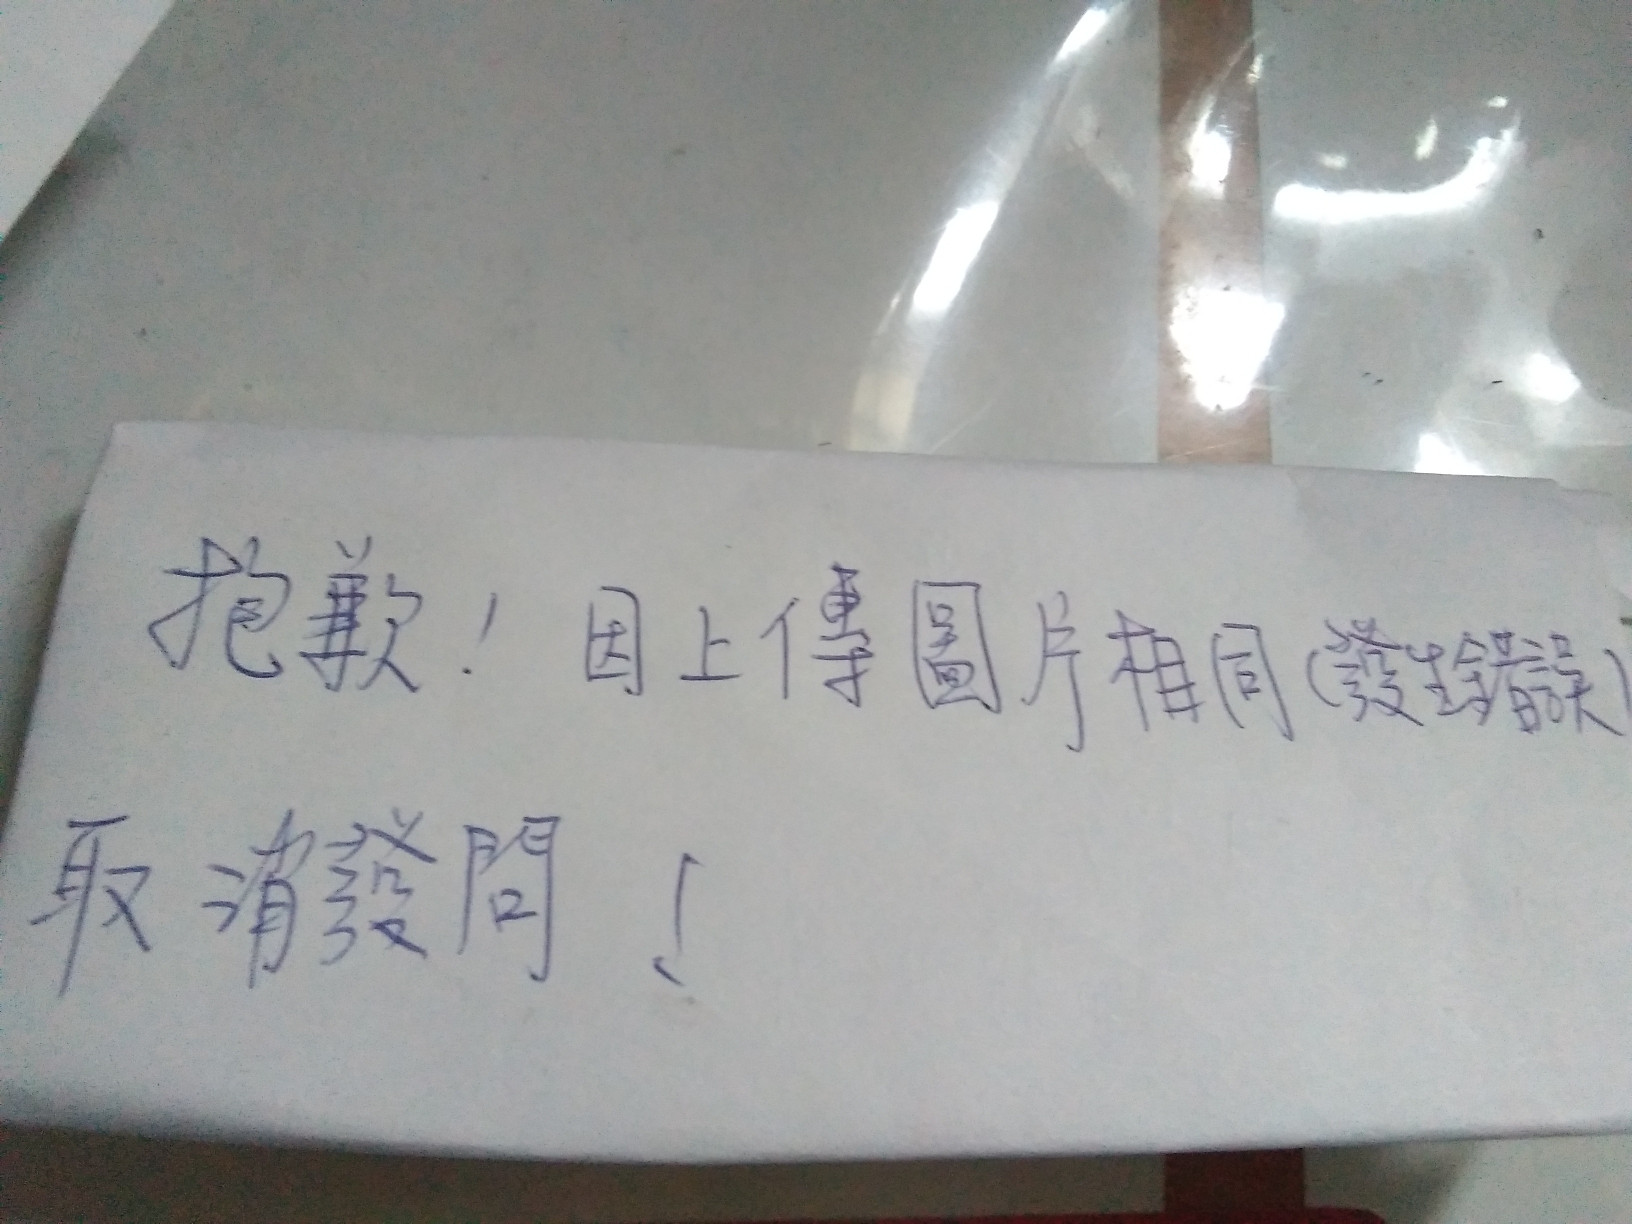 抱歉！因上傳圖片相同(發生錯誤)
取消發問！